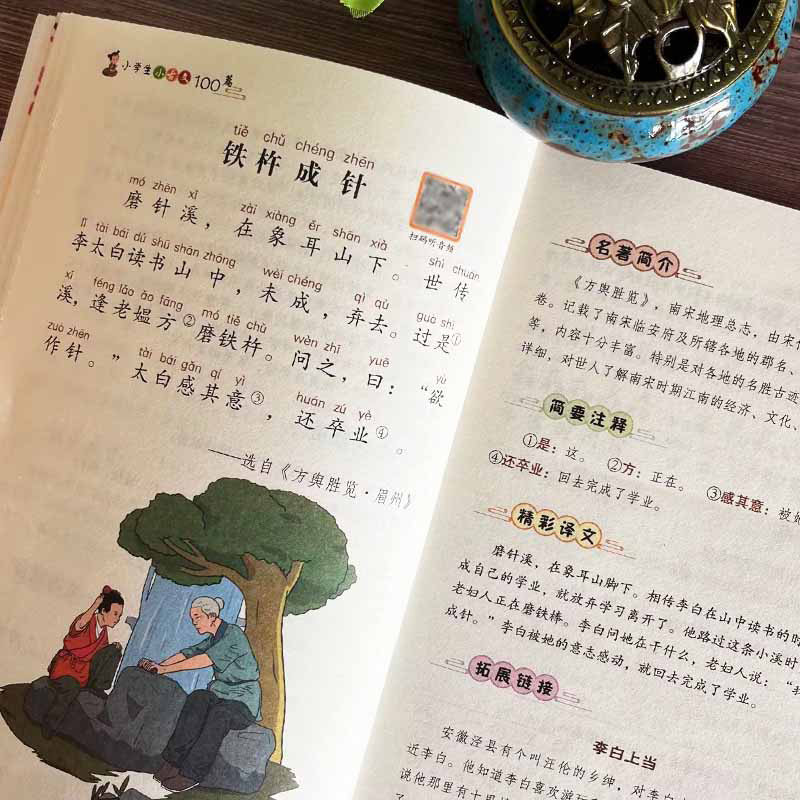 小学生小古文100篇
tiě chǔ chéng zhēn
铁杵成针
扫码听音频
mó zhēn xī zài xiàng ěr shān xià shì chuán
磨针溪，在象耳山下。世传
lǐ tài bái dú shū shān zhōng wèi chéng qì qù guò shì
李太白读书山中，未成，弃去。过是①
xī féng lǎo ǎo fāng mó tiě chǔ wèn zhī yuē yù
溪，逢老媪方②磨铁杵。问之，曰：“欲
zuò zhēn tài bái gǎn qí yì huán zú yè
作针。”太白感其意③，还卒业④。
——选自《方舆胜览·眉州》
名著简介
《方舆胜览》，南宋地理总志，由宋
卷。记载了南宋临安府及所辖各地的郡名、
等，内容十分丰富。特别是对各地的名胜古迹
详细，对世人了解南宋时期江南的经济、文化、
简要注释
①是：这。 ②方：正在。 ③感其意：被
④还卒业：回去完成了学业。
精彩译文
磨针溪，在象耳山脚下。相传李白在山中读书的时
成自己的学业，就放弃学习离开了。他路过这条小溪时
老妇人正在磨铁棒。李白问她在干什么，老妇人说：“我
成针。”李白被她的意志感动，就回去完成了学业。
拓展链接
李白上当
安徽泾县有个叫汪伦的乡绅，对李
近李白。他知道李白喜欢游
说他那里有十里